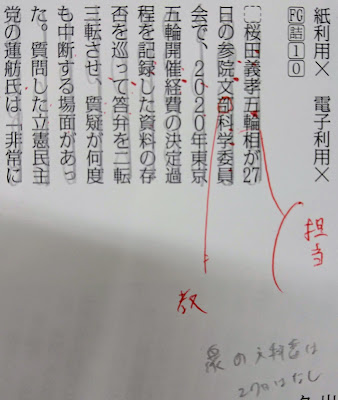 紙利用× 電子利用×
FG 詰 1 0
桜田義孝五輪相が27
日の参院文部科学委員
会で、2020年東京
五輪開催経費の決定過
程を記録した資料の存
否を巡って答弁を二転
三転させ、質疑が何度
も中断する場面があっ
た。質問した立憲民主
党の蓮舫氏は「非常に
担当
教
衆の文科委は
27日はなし